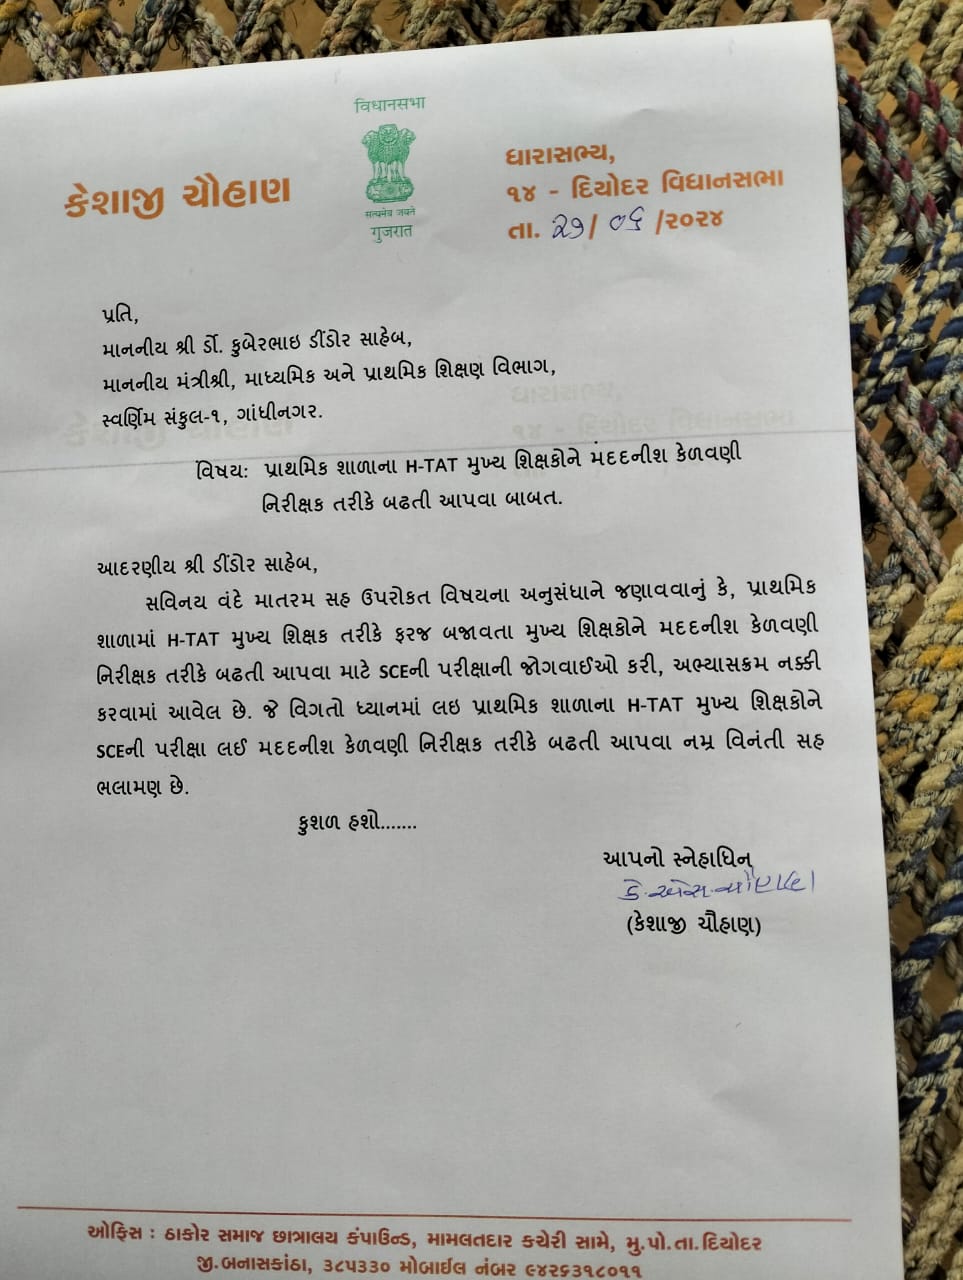 विधानसभा
सत्यमेव जयते
गुजरात
કેશાજી ચૌહાણ
ધારાસભ્ય,
૧૪ - દિયોદર વિધાનસભા
તા. ૨૭/ ૦૬ /૨૦૨૪
પ્રતિ,
માનનીય શ્રી ર્ડા. કુબેરભાઇ ડીંડોર સાહેબ,
માનનીય મંત્રીશ્રી, માધ્યમિક અને પ્રાથમિક શિક્ષણ વિભાગ,
સ્વર્ણિમ સંકુલ-૧, ગાંધીનગર.
વિષય: પ્રાથમિક શાળાના H-TAT મુખ્ય શિક્ષકોને મદદનીશ કેળવણી
નિરીક્ષક તરીકે બઢતી આપવા બાબત.
આદરણીય શ્રી ડીંડોર સાહેબ,
સવિનય વંદે માતરમ સહ ઉપરોક્ત વિષયના અનુસંધાને જણાવવાનું કે, પ્રાથમિક
શાળામાં H-TAT મુખ્ય શિક્ષક તરીકે ફરજ બજાવતા મુખ્ય શિક્ષકોને મદદનીશ કેળવણી
નિરીક્ષક તરીકે બઢતી આપવા માટે SCEની પરીક્ષાની જોગવાઈઓ કરી, અભ્યાસક્રમ નક્કી
કરવામાં આવેલ છે. જે વિગતો ધ્યાનમાં લઇ પ્રાથમિક શાળાના H-TAT મુખ્ય શિક્ષકોને
SCEની પરીક્ષા લઈ મદદનીશ કેળવણી નિરીક્ષક તરીકે બઢતી આપવા નમ્ર વિનંતી સહ
ભલામણ છે.
કુશળ હશો.......
આપનો સ્નેહાધિન્
કે.એસ.ચૌહાણ
(કેશાજી ચૌહાણ)
ઓફિસ : ઠાકોર સમાજ છાત્રાલય કંપાઉન્ડ, મામલતદાર કચેરી સામે, મુ.પો.તા.દિયોદર
જી.બનાસકાંઠા, ૩૮૫૩૩૦ મોબાઈલ નંબર ૯૪૨૬૩૧૮૦૧૧